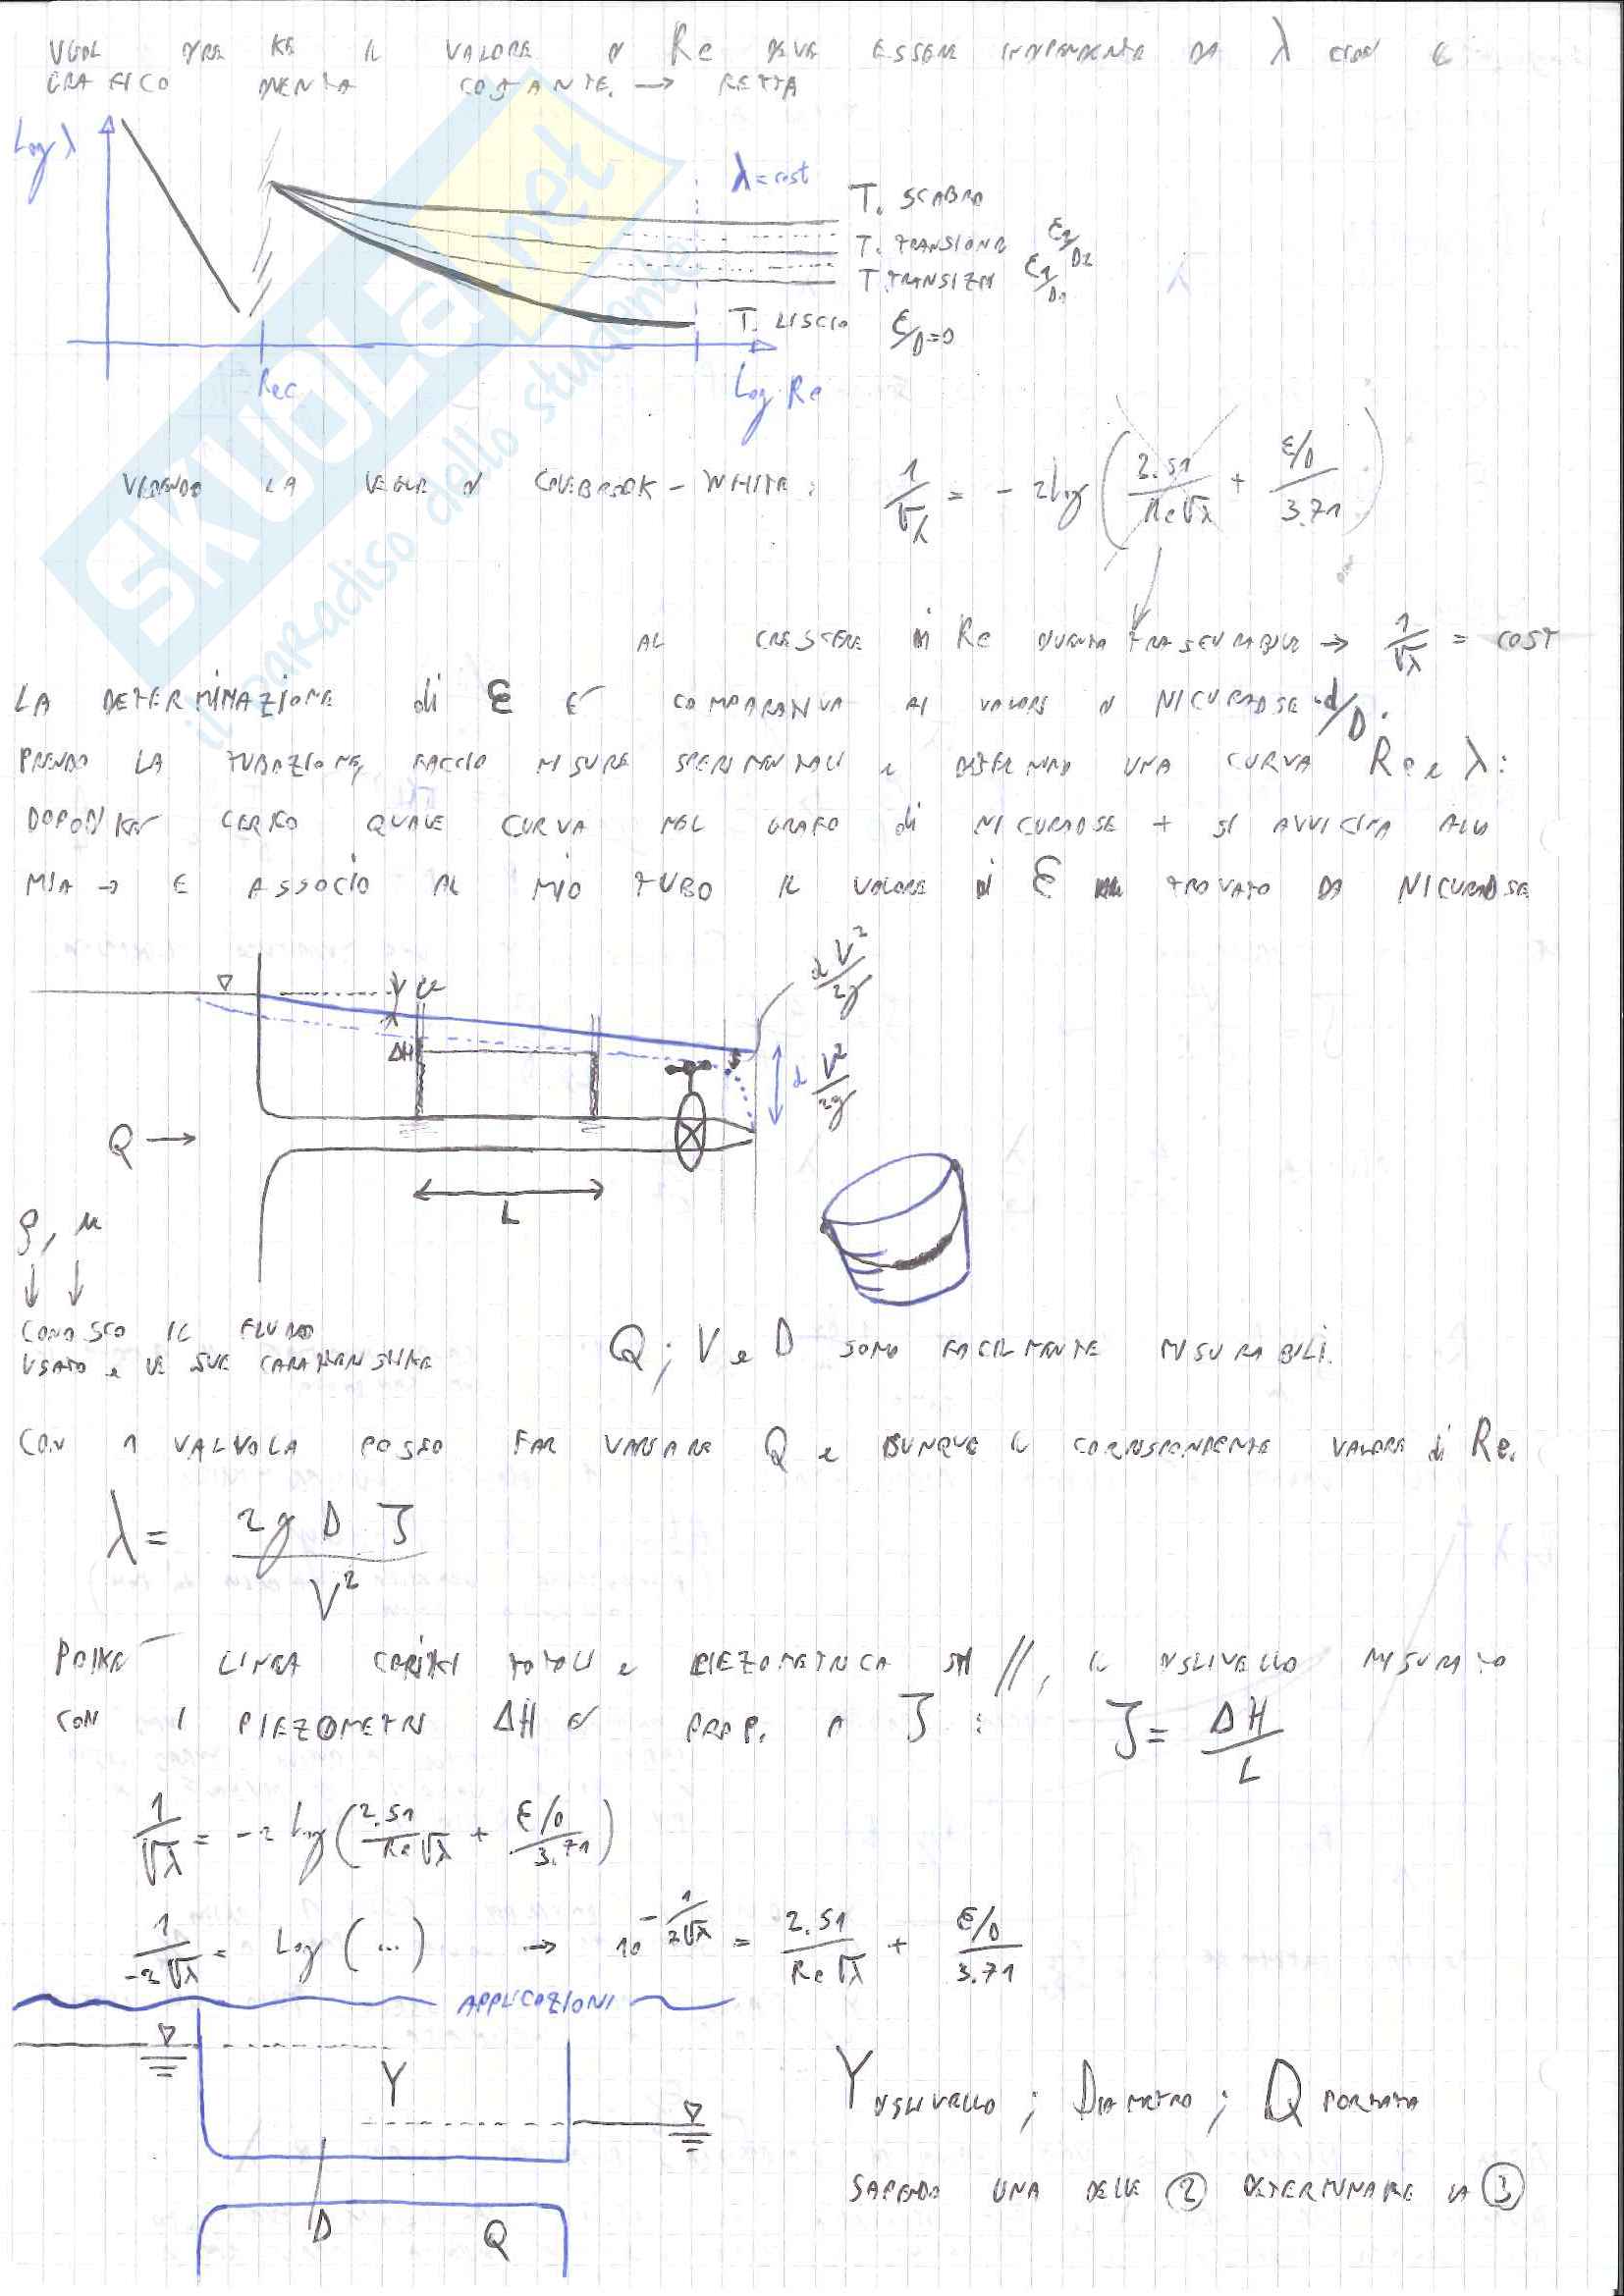 VUOL DIRE KE IL VALORE DI Re DEVE ESSERE INDIPENDENTE DA λ CIOÈ IL
GRAFICO DIVENTA COSTANTE. → RETTA
Log λ
λ = cost
T. SCABRO
T. TRANSIONE ε2/D2
T. TRANSIZN ε1/D1
T. LISCIO ε/D=0
Rec
Log Re
SKUOLA.net
il paradiso dello studente
VEDENDO LA LEGGE DI COLEBROOK - WHITE: 1/√λ = - 2log(2.51/Re√λ + ε/D/3.71)
AL CRESCERE di Re DIVENTA TRASCURABILE → 1/√λ = COST
LA DETERMINAZIONE di ε E' COMPARATIVA AI VALORI DI NICURADSE d/D.
PRENDO LA TUBAZIONE, FACCIO MISURE SPERIMENTALI e DETERMINO UNA CURVA Re e λ:
DOPODIKE' CERKO QUALE CURVA NEL GRAFO di NICURADSE + SI AVVICINA ALLA
MIA → E ASSOCIO AL MIO TUBO IL VALORE di ε TROVATO DA NICURADSE
α V²/2g
ΔH
α V²/2g
Q →
L
ρ, μ
↓ ↓
CONOSCO IL FLUIDO
USATO e LE SUE CARATTERISTIKE
Q ; V e D SONO FACILMENTE MISURABILI.
CON 1 VALVOLA POSSO FAR VARIARE Q e DUNQUE IL CORRISPONDENTE VALORE di Re.
λ = 2g D J / V²
POIKE' LINEA CARIKI TOTALI e PIEZOMETRICA SN //, IL DISLIVELLO MISURATO
CON I PIEZOMETRI ΔH E' PROP. A J : J = ΔH/L
1/√λ = -2 log(2.51/Re√λ + ε/D/3.71)
1/-2√λ = Log (...) → 10^-1/2√λ = 2.51/Re√λ + ε/D/3.71
APPLICAZIONI
Y
Y DISLIVELLO ; DIAMETRO ; Q PORTATA
SAPENDO UNA DELLE 2 DETERMINARE LA 3
D
Q